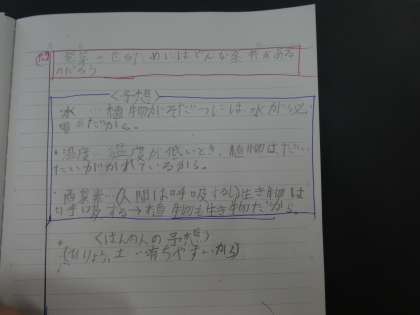 発芽の三つめにはどんな条件がある
のだろう
<予想>
水…植物がそだつには水が必
要だから。
・温度 温度が低いとき、植物はだい
たいがかれているから。
・酸素…(人間は呼吸する)生き物は
呼吸する→植物も生き物だから。
<はんの人の予想>
ひりょう、土…育ちやすいから